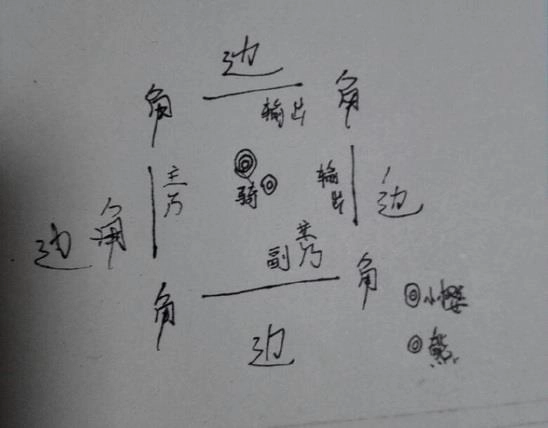 边
角
角
输出
主乃
骑
输出
边
边
副
主乃
角
角
边
小怪
熊